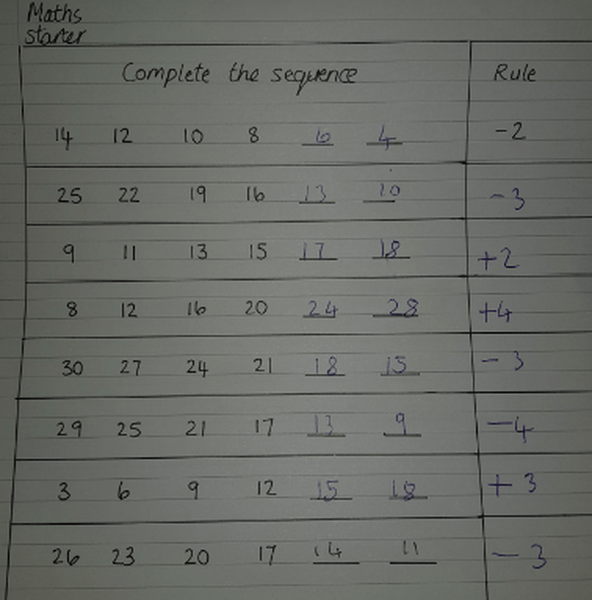 Maths
starter
Complete the sequence Rule
14 12 10 8 6 4 -2
25 22 19 16 13 10 -3
9 11 13 15 17 18 +2
8 12 16 20 24 28 +4
30 27 24 21 18 15 -3
29 25 21 17 13 9 -4
3 6 9 12 15 18 +3
26 23 20 17 14 11 -3